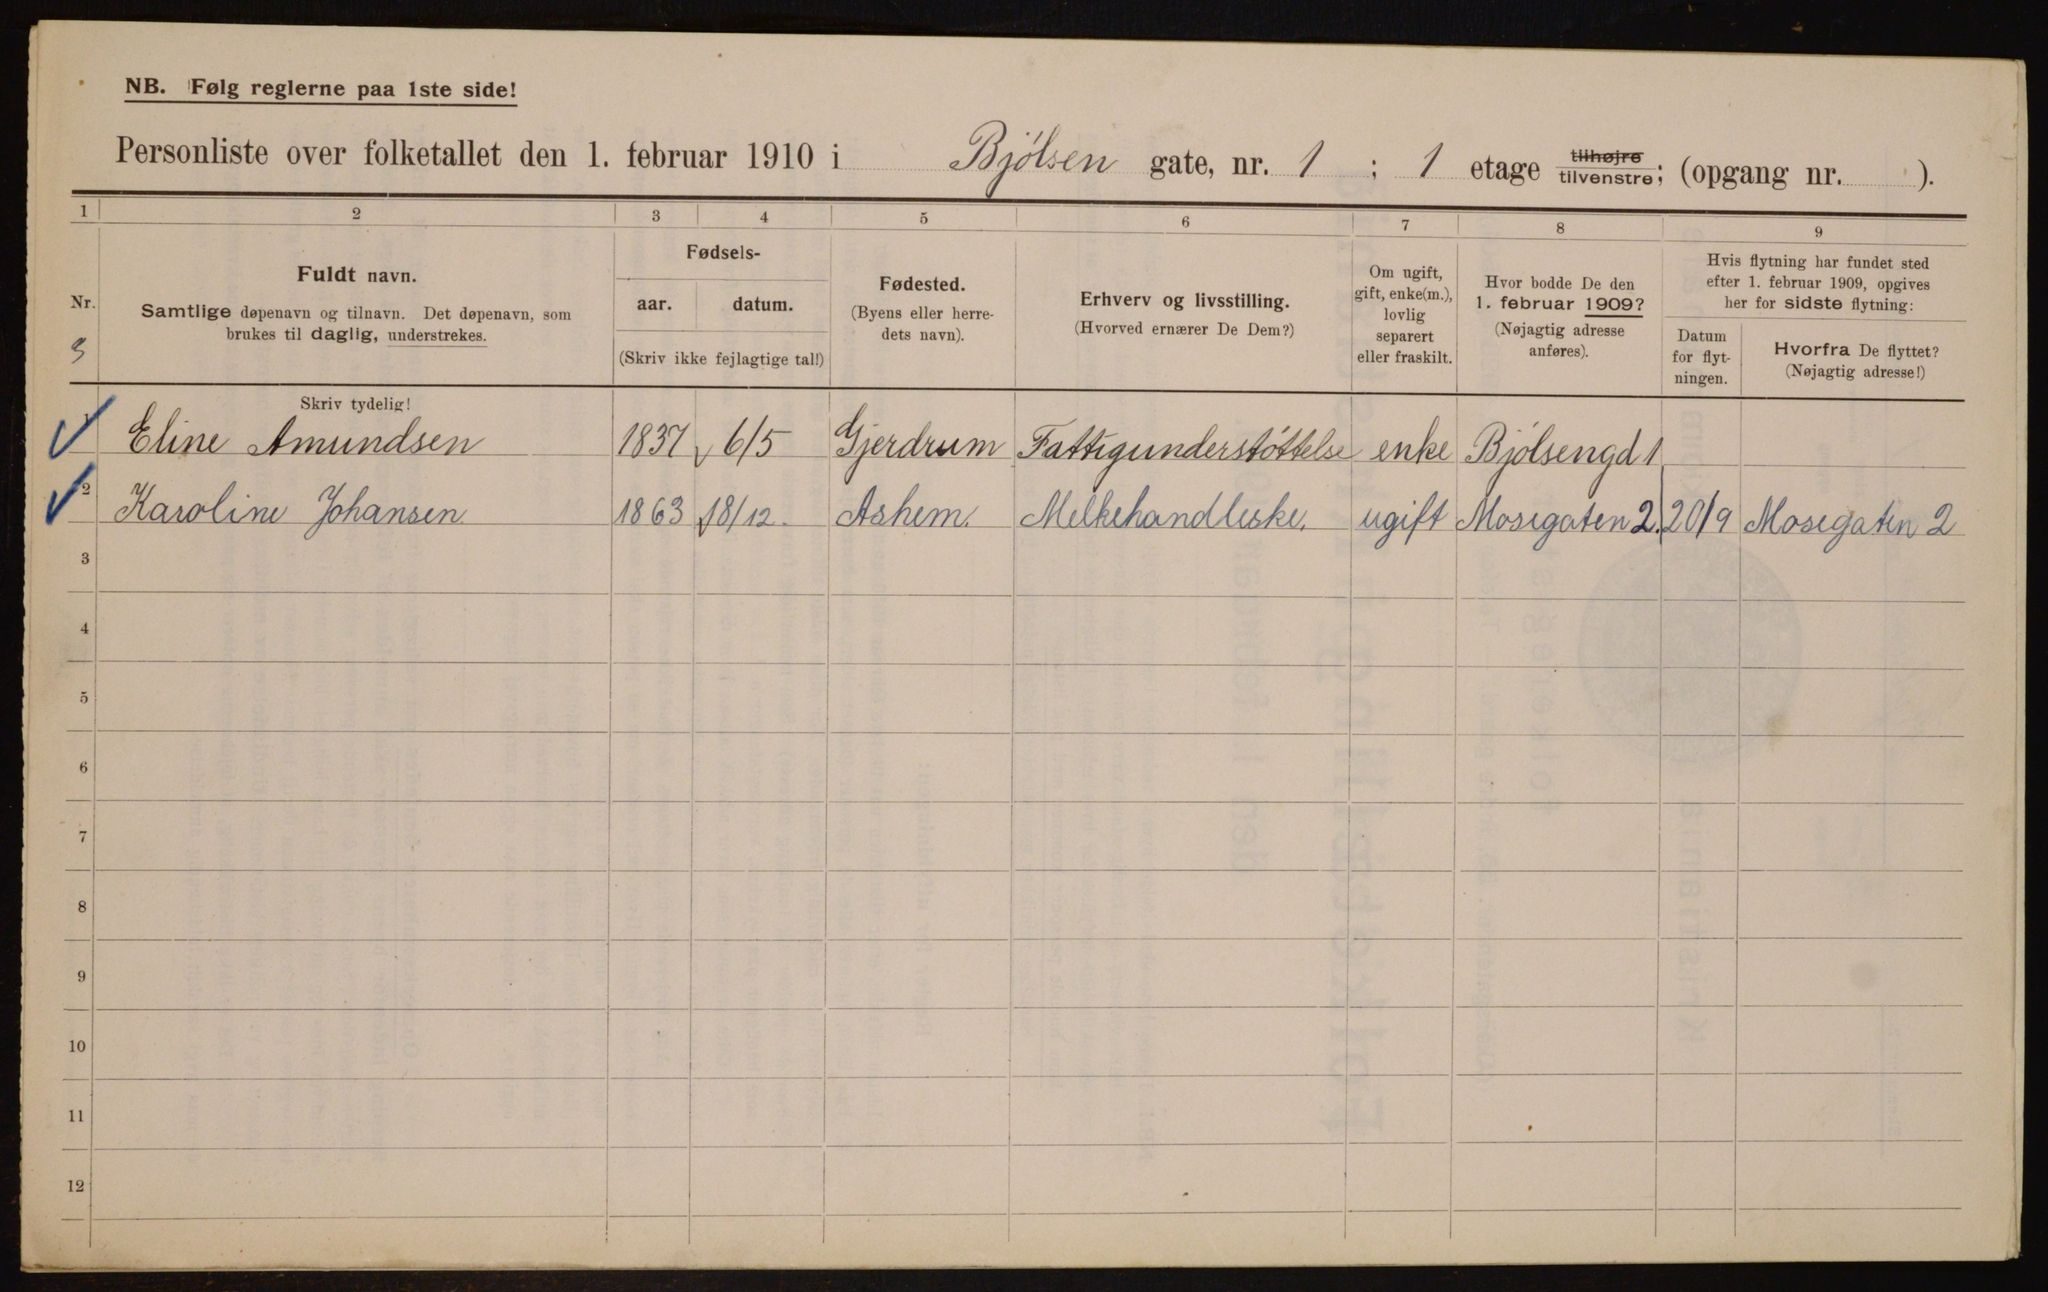 NB. Følg reglerne paa 1ste side!
Personliste over folketallet den 1. februar 1910 i Bjølsen gate, nr. 1 ; 1 etage tilhøjre tilvenstre; (opgang nr. ).
1 2 3 4 5 6 7 8 9
Nr.
3
Fuldt navn.
Samtlige døpenavn og tilnavn. Det døpenavn, som
brukes til daglig, understrekes.
Fødsels-
aar. datum.
(Skriv ikke fejlagtige tal!)
Fødested.
(Byens eller herre-
dets navn).
Erhverv og livsstilling.
(Hvorved ernærer De Dem?)
Om ugift,
gift, enke(m.),
lovlig
separert
eller fraskilt.
Hvor bodde De den
1. februar 1909?
(Nøjagtig adresse
anføres).
Hvis flytning har fundet sted
efter 1. februar 1909, opgives
her for sidste flytning:
Datum
for flyt-
ningen.
Hvorfra De flyttet?
(Nøjagtig adresse!)
Skriv tydelig!
1 Eline Amundsen 1837 6/5 Gjerdrum Fattigunderstøttelse enke Bjølsengd 1
2 Karoline Johansen 1863 18/12 Ashem. Melkehandleske. ugift Mosegaten 2. 20/9 Mosegaten 2
3
4
5
6
7
8
9
10
11
12